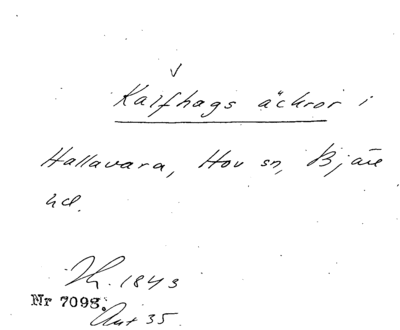 Kalfhags äckror i
Hallavara, Hov sn, Bjäre
hd.
1843
Nr 7098.
35.